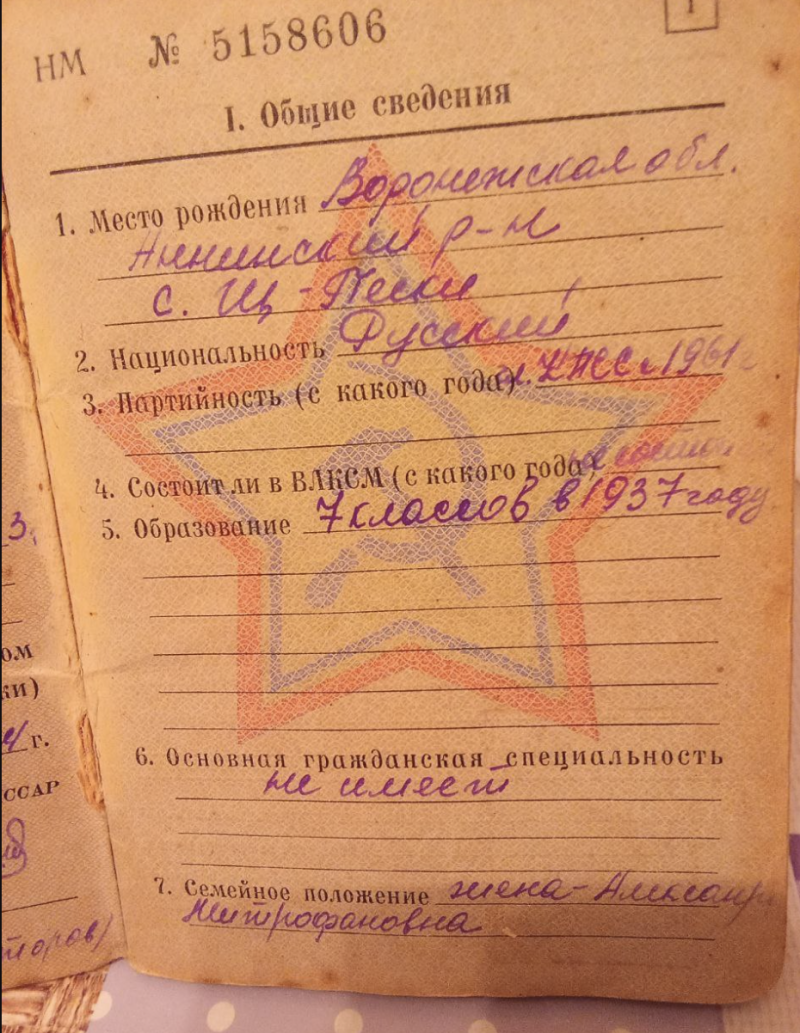 1
НМ № 5158606
I. Общие сведения
1. Место рождения Воронежская обл.
Аннинский р-н
с. Щ-Пески
2. Национальность Русский
3. Партийность (с какого года) чл. КПСС с 1961 г
4. Состоит ли в ВЛКСМ (с какого года) не состоит
5. Образование 7 классов в 1937 году
3.
ом
ки)
4 г.
6. Основная гражданская специальность
не имеет
ССАР
7. Семейное положение жена - Александра
Митрофановна
торов)